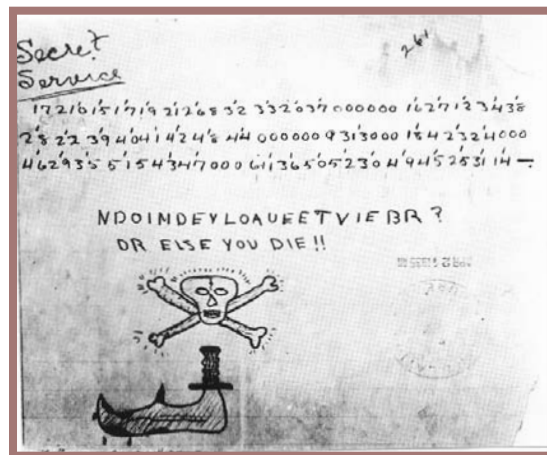 Secret
261
Service
1721015171921268 32 332037000000 162712 3438
28 22 39 4041424844 000000 9313000 1842324000
4629355154347000 61136505230 4945283114—
NDOIMDEYLOAUEETVIEBR?
OR ELSE YOU DIE!!